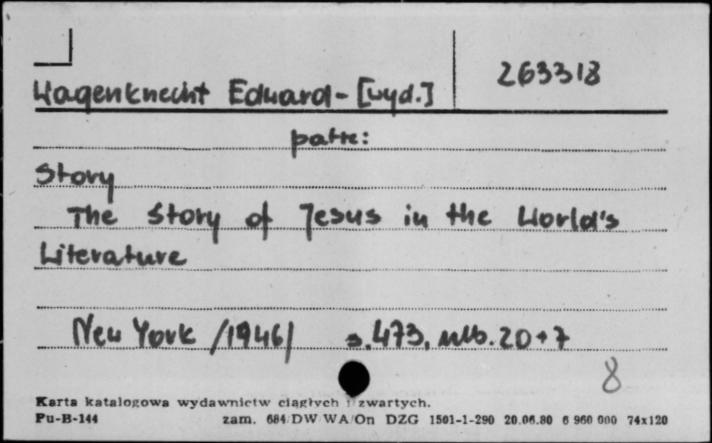 Wagenknecht Eduard - [wyd.] 263318
patrz:
Story
The Story of Jesus in the World's
Literature
New York /1946/ s. 473, nlb. 20+7
8
Karta katalogowa wydawnictw ciągłych i zwartych.
Pu-B-144 zam. 684/DW/WA/On DZG 1501-1-290 20.06.80 6 960 000 74x120